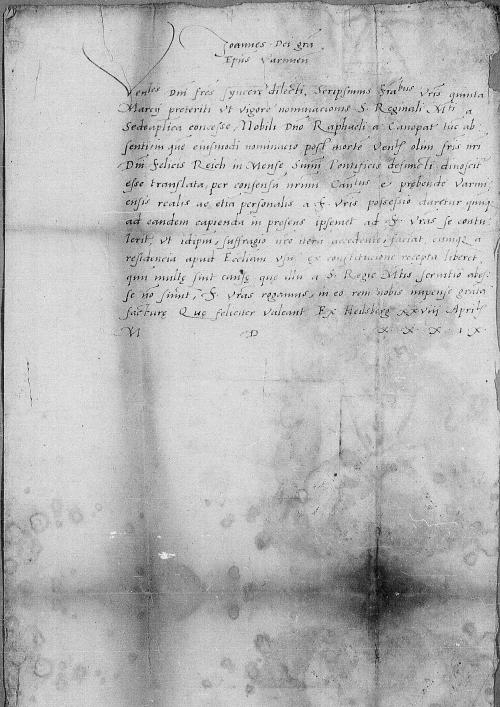 Joannes Dei gra
Epus Varmien
Venles Dni fres syncere dilecti. Scripsimus Fratbus Vris quinta
Marcij preteriti vt vigore nominacionis S. Reginali Mti a
Sede aplica concesse, Nobili Dno Raphaeli a Canopat tuc ab
sentium que eiusmodi nominacio post morte Venlis olim fris nri
Dni Felicis Reich in Mense Summi Pontificis defuncti dinoscit
esse translata, per consensu nrum Cantus et prebende Varmi
ensis realis ac etia personalis a F. Vris possessio daretur quiq
ad eandem capienda in presens ipsemet ad F. Vras se contu
lerit, vt idipm, suffragio nro itera accedente, faciat, eumq a
residencia apud Eccliam vsu, ex constitucione recepta liberet,
qum multe sint cause que illu a S. Regie Mtis seruitio abes
se no sinunt, F. Vras rogamus, in eo rem nobis impense grata
facture Que feliciter valeant Ex Heilsberg xxviij Aprilis
M D X X X I X